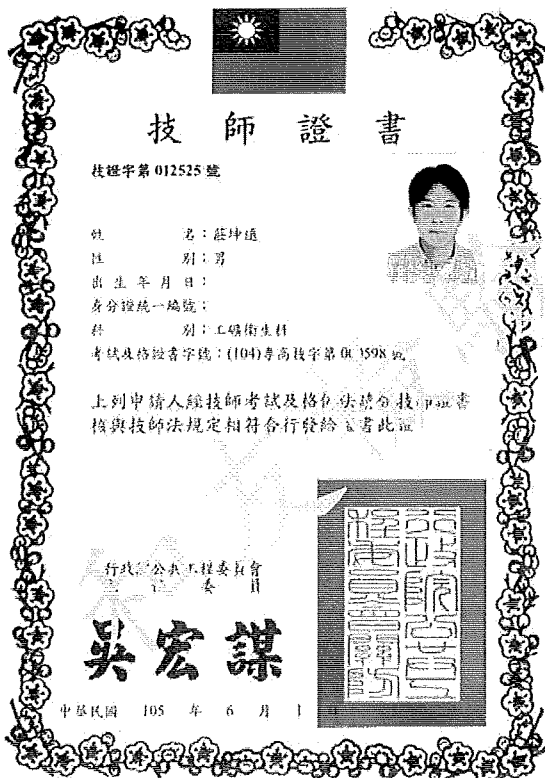 技師證書
技證字第012525號
姓 名：莊坤遠
性 別：男
出生年月日：
身分證統一編號：
科 別：工礦衛生科
考試及格證書字號：(104)專高技字第 598號
上列申請人經技師考試及格 依法請領技師證書
核與技師法規定相符合行發給 書此證
行政院公共工程委員會
主任委員
吳宏謀
中華民國 105 年 6 月 1
行政院公共
工程委員會